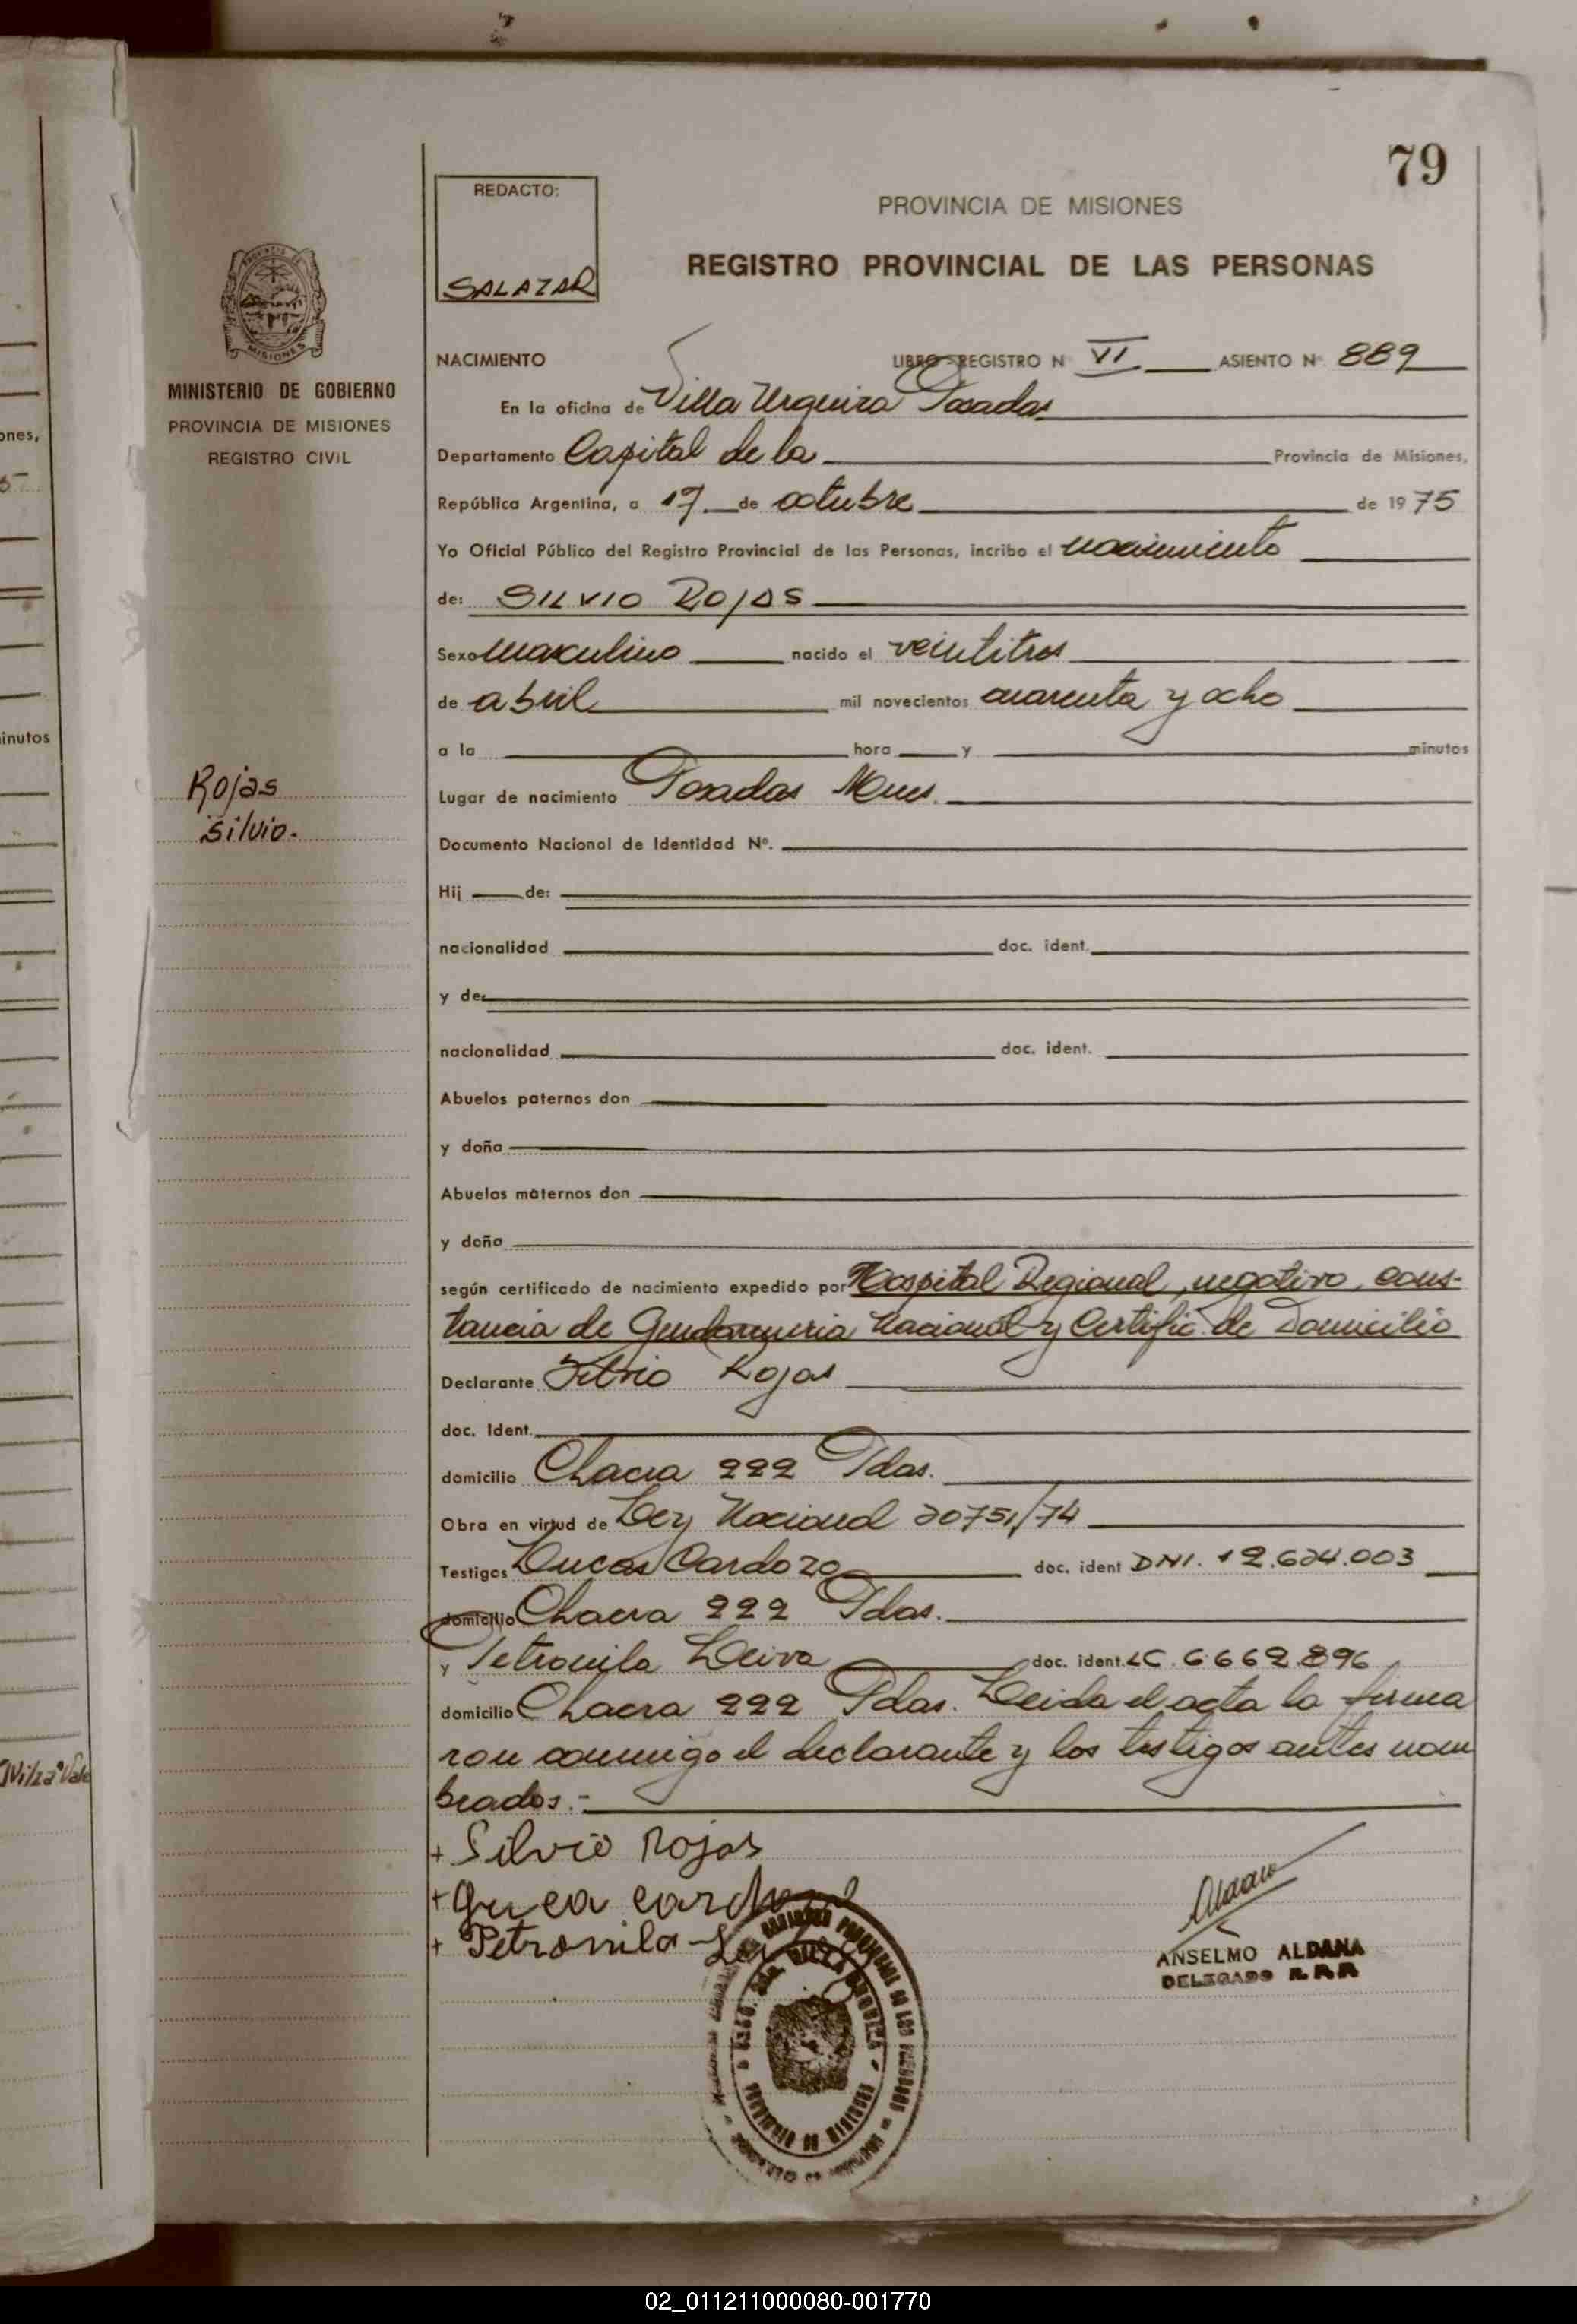 79
REDACTO:
SALAZAR
PROVINCIA DE MISIONES
REGISTRO PROVINCIAL DE LAS PERSONAS
MISIONES
MINISTERIO DE GOBIERNO
PROVINCIA DE MISIONES
REGISTRO CIVIL
NACIMIENTO LIBRO-REGISTRO N VI ASIENTO Nº 889
En la oficina de Villa Urquiza Posadas
Departamento Capital de la Provincia de Misiones,
República Argentina, a 17 de octubre de 1975
Yo Oficial Público del Registro Provincial de las Personas, incribo el nacimiento
de: SILVIO ROJAS
Sexo masculino nacido el veintitres
de abril mil novecientos cuarenta y ocho
a la hora y minutos
Lugar de nacimiento Posadas Mnes.
Rojas
Silvio.
Documento Nacional de Identidad Nº.
Hij de:
nacionalidad doc. ident.
y de:
nacionalidad doc. ident.
Abuelos paternos don
y doña
Abuelos maternos don
y doña
según certificado de nacimiento expedido por Hospital Regional, negativo, cons-
tancia de Gendarmeria Nacional y Certific. de Domicilio
Declarante Silvio Rojas
doc. Ident.
domicilio Chacra 222 Pdas.
Obra en virtud de Ley Nacional 20751/74
Testigos Lucas Cardozo doc. ident DNI. 12.624.003
domicilio Chacra 222 Pdas.
y Petronila Leiva doc. ident. LC. 6.662.896
domicilio Chacra 222 Pdas. Leida el acta la firma
ron conmigo el declarante y los testigos antes nom
brados.-
+ Silvio Rojas
+ Petronila
ANSELMO ALDANA
DELEGADO R.P.P.
inutos
ones,
02_011211000080-001770